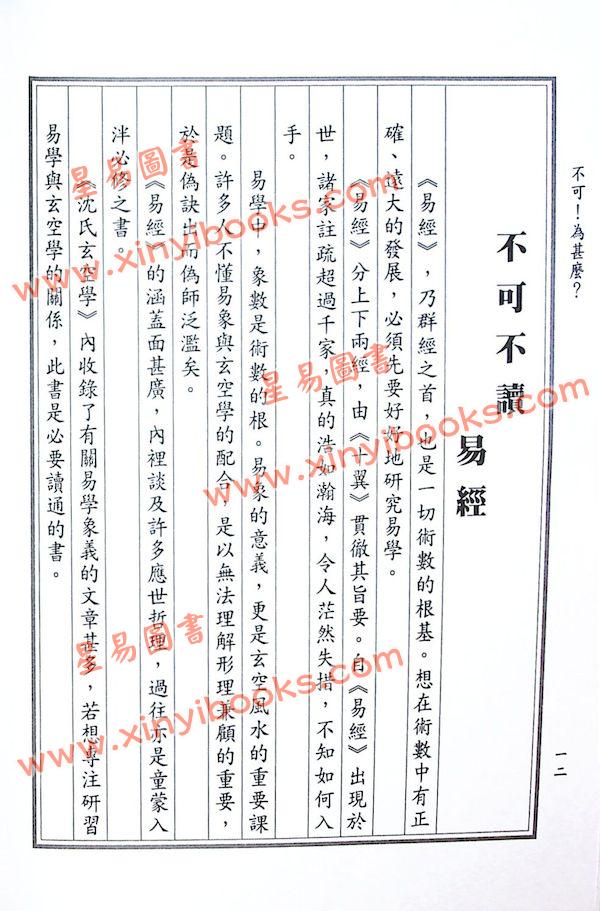 不可！為甚麼？
一二
不可不讀
易經
《易經》，乃群經之首，也是一切術數的根基。想在術數中有正
確、遠大的發展，必須先要好好地研究易學。
《易經》分上下兩經，由《十翼》貫徹其旨要。自《易經》出現於
世，諸家註疏超過千家，真的浩如瀚海，令人茫然失措，不知如何入
手。
易學中，象數是術數的根。易象的意義，更是玄空風水的重要課
題。許多人不懂易象與玄空學的配合，是以無法理解形理兼顧的重要，
於是偽訣出而偽師泛濫矣。
《易經》的涵蓋面甚廣，內裡談及許多應世哲理，過往亦是童蒙入
泮必修之書。
《沈氏玄空學》內收錄了有關易學象義的文章甚多，若想專注研習
易學與玄空學的關係，此書是必要讀通的書。
星易圖書
www.xinyibooks.com
星易圖書
www.xinyibooks.com
星易圖書
www.xinyibooks.com